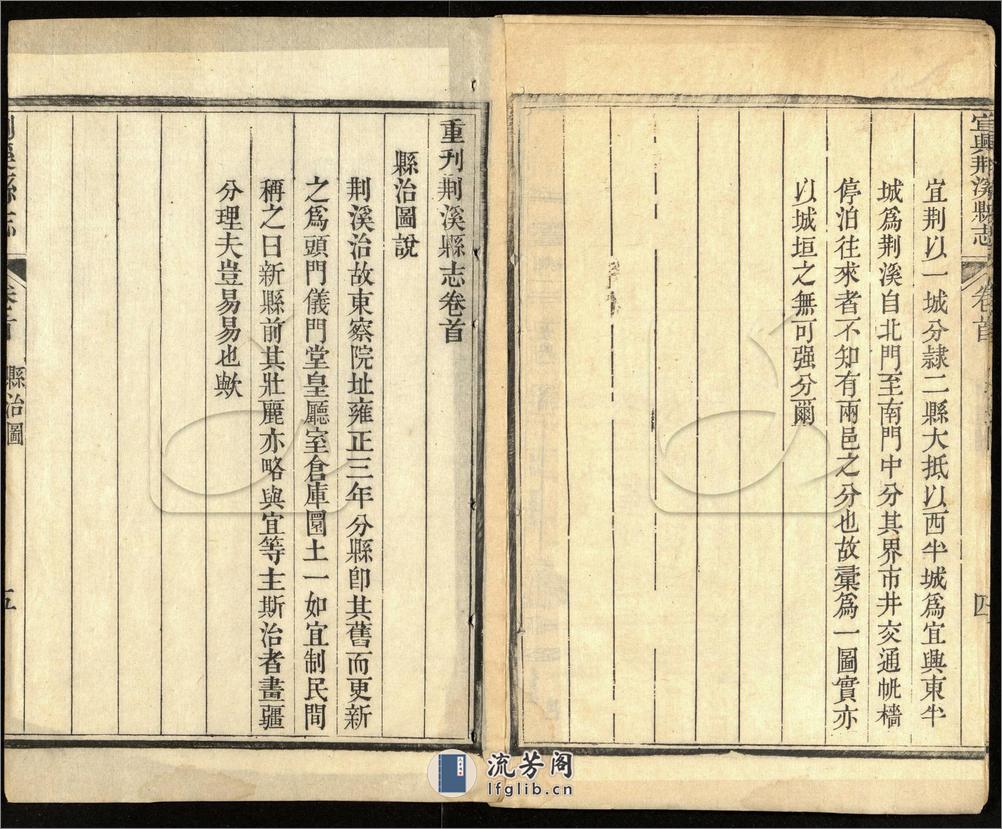 宜興荆溪縣志
卷首
四
宜荆以一城分隸二縣大抵以西半城爲宜興東半
城爲荆溪自北門至南門中分其界市井交通帆檣
停泊往來者不知有兩邑之分也故彙爲一圖實亦
以城垣之無可强分爾
重刊荆溪縣志卷首
縣治圖說
荆溪治故東察院址雍正三年分縣卽其舊而更新
之爲頭門儀門堂皇廳室倉庫圜土一如宜制民間
稱之曰新縣前其壯麗亦略與宜等主斯治者畫疆
分理夫豈易易也歟
縣治圖
五
流芳阁
lfglib.cn